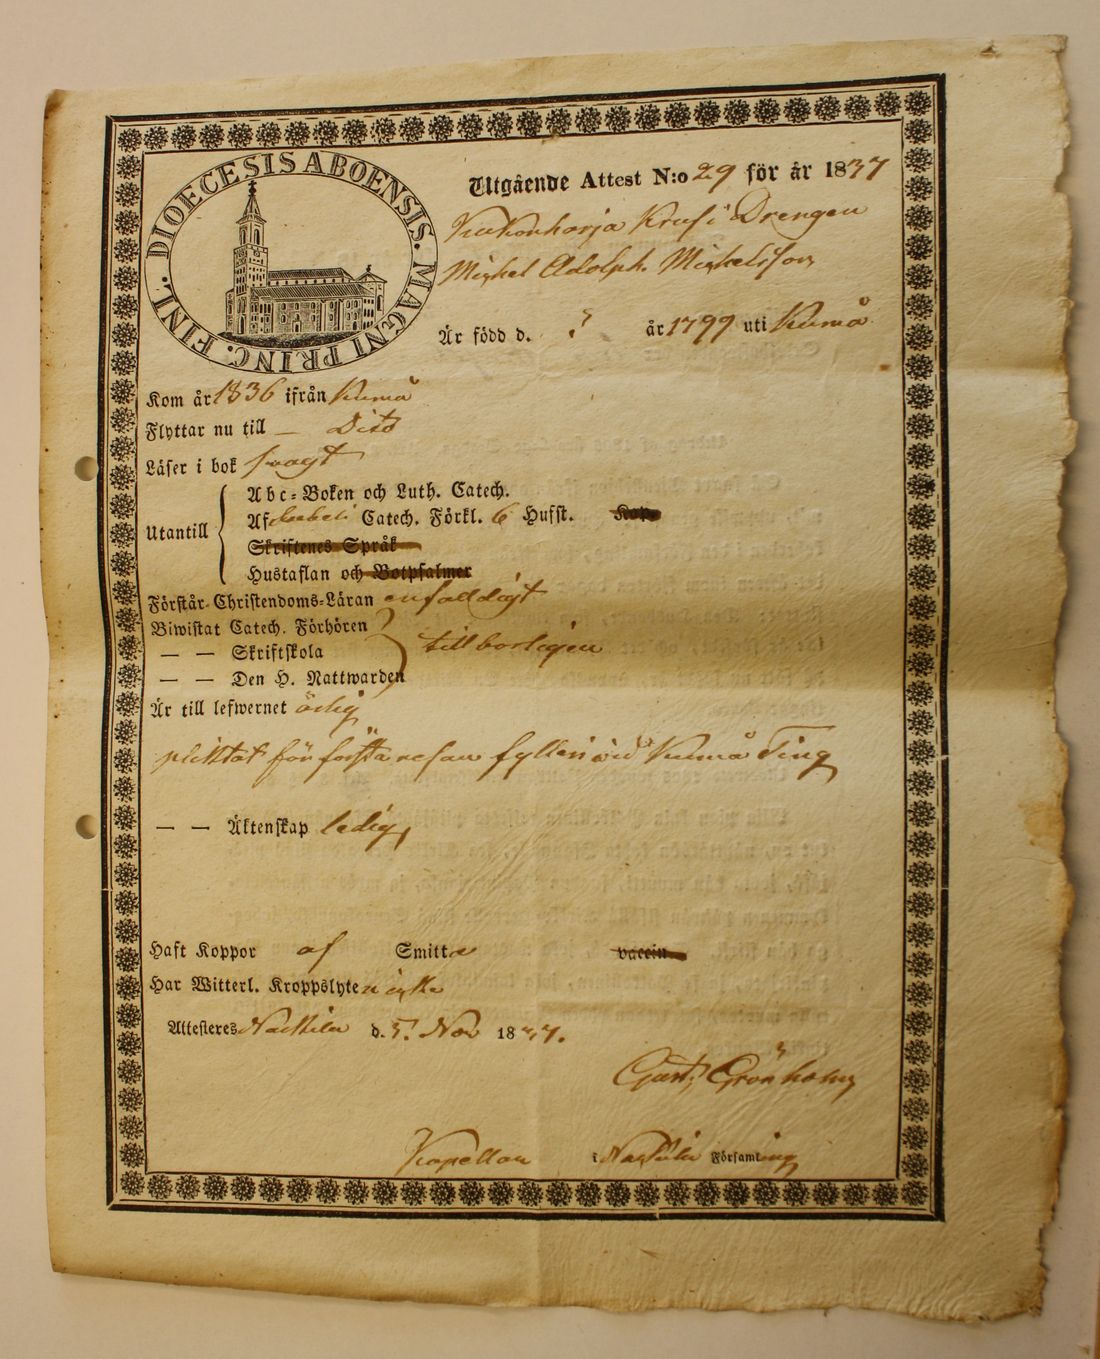 DIOECESIS ABOENSIS. MAGNI PRINC. FINL.
Utgående Attest N:o 29 för år 1837
Krusi Drengen
Mickel Adolph Mickelsson
Är född d. ? år 1799 uti Kumå
Kom år 1836 ifrån Kumå
Flyttar nu till — Dito
Läser i bok svagt
Utantill
Abc-Boken och Luth. Catech.
Af Catech. Förkl. 6 Hufst.
Skriftenes Språk
Hustaflan och Botpsalmer
Förstår Christendoms-Läran enfaldigt
Biwistat Catech. Förhören
— — Skriftskola tillbörligen
— — Den H. Nattwarden
Är till lefwernet ärlig
pliktat för första resan fylleri vid Kumå Ting
— — Äktenskap ledig,
Haft Koppor af Smitta vaccin
Har Witterl. Kroppslyte n icke
Attesteras Nackila d. 5. Nov 1837.
Gust. Grönholm
Kapellan i Nackila Församling